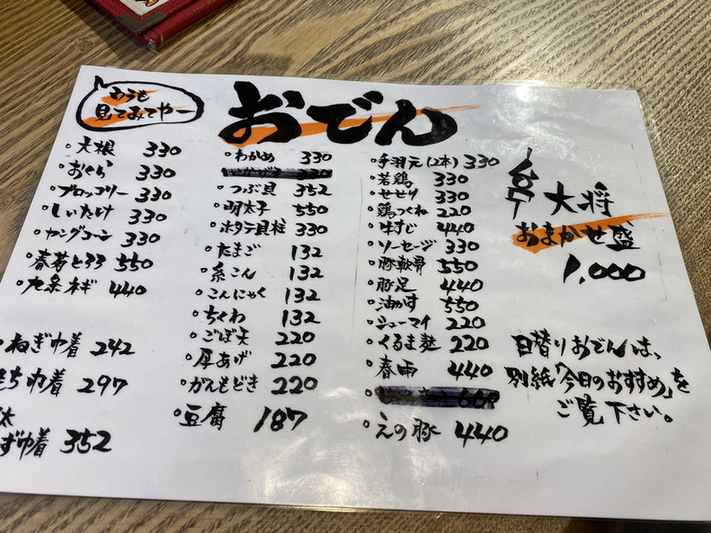 見てみてやー
おでん
大根 330
おくら 330
ブロッコリー 330
しいたけ 330
ヤングコーン 330
春芽とろろ 550
九条ネギ 440
ねぎ巾着 242
ち巾着 297
太
ず巾着 352
わかめ 330
つぶ貝 352
明太子 550
ホタテ貝柱 330
たまご 132
糸こん 132
こんにゃく 132
ちくわ 132
ごぼ天 220
厚あげ 220
がんもどき 220
豆腐 187
手羽元(2本) 330
若鶏 330
せせり 330
鶏つくね 220
牛すじ 440
ソーセージ 330
豚軟骨 550
豚足 440
油かす 550
シューマイ 220
くるま麩 220
春雨 440
えの豚 440
大将
おまかせ盛
1,000
日替りおでんは、
別紙「今日のおすすめ」を
ご覧下さい。